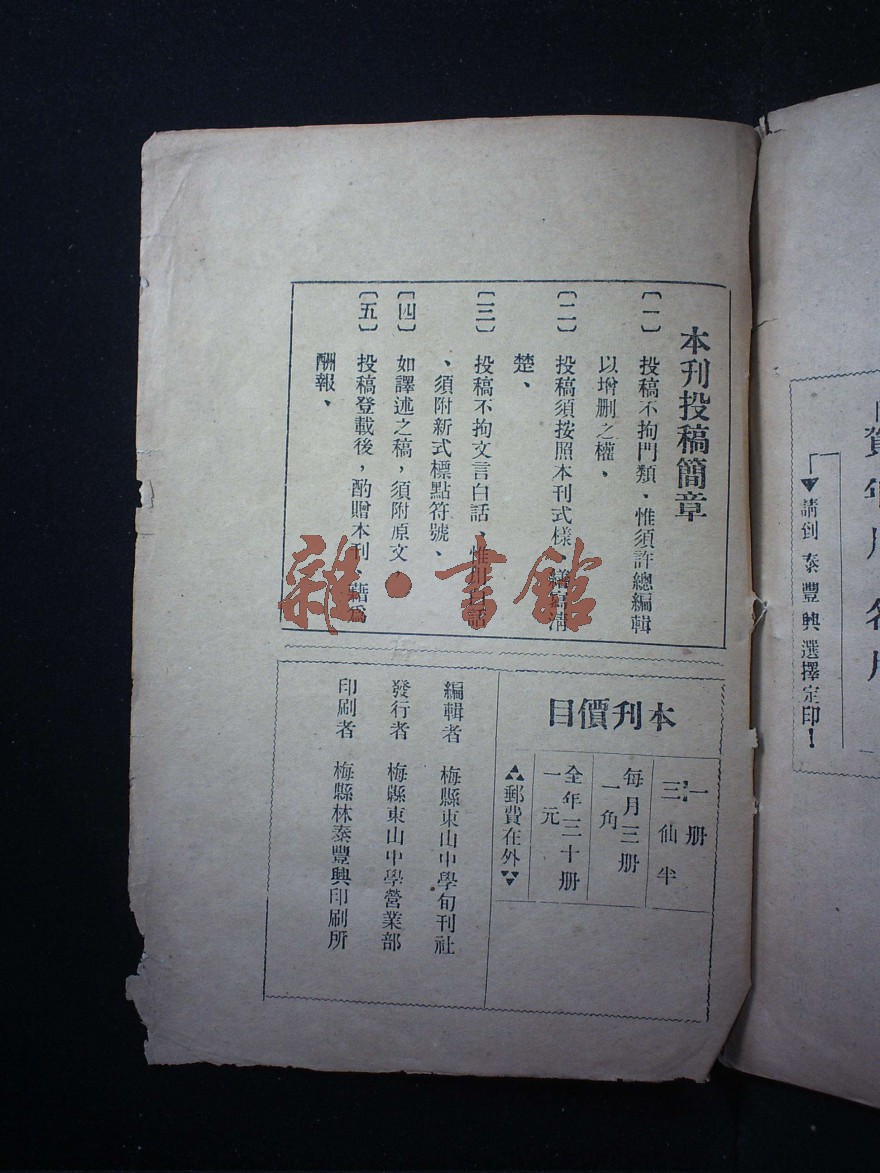 本刊投稿簡章
〔一〕　投稿不拘門類、惟須許總編輯
以增删之權、
〔二〕　投稿須按照本刊式樣、繕寫清
楚、
〔三〕　投稿不拘文言白話、惟用白話
、須附新式標點符號、
〔四〕　如譯述之稿，須附原文，
〔五〕　投稿登載後，酌贈本刊、藉爲
酬報、
雜·書館
本刋價目
一册
三仙半
每月三册
一角
全年三十册
一元
郵費在外
編輯者　梅縣東山中學旬刊社
發行者　梅縣東山中學營業部
印刷者　梅縣林泰豐興印刷所
賀年用名片
請到泰豐興選擇定印！